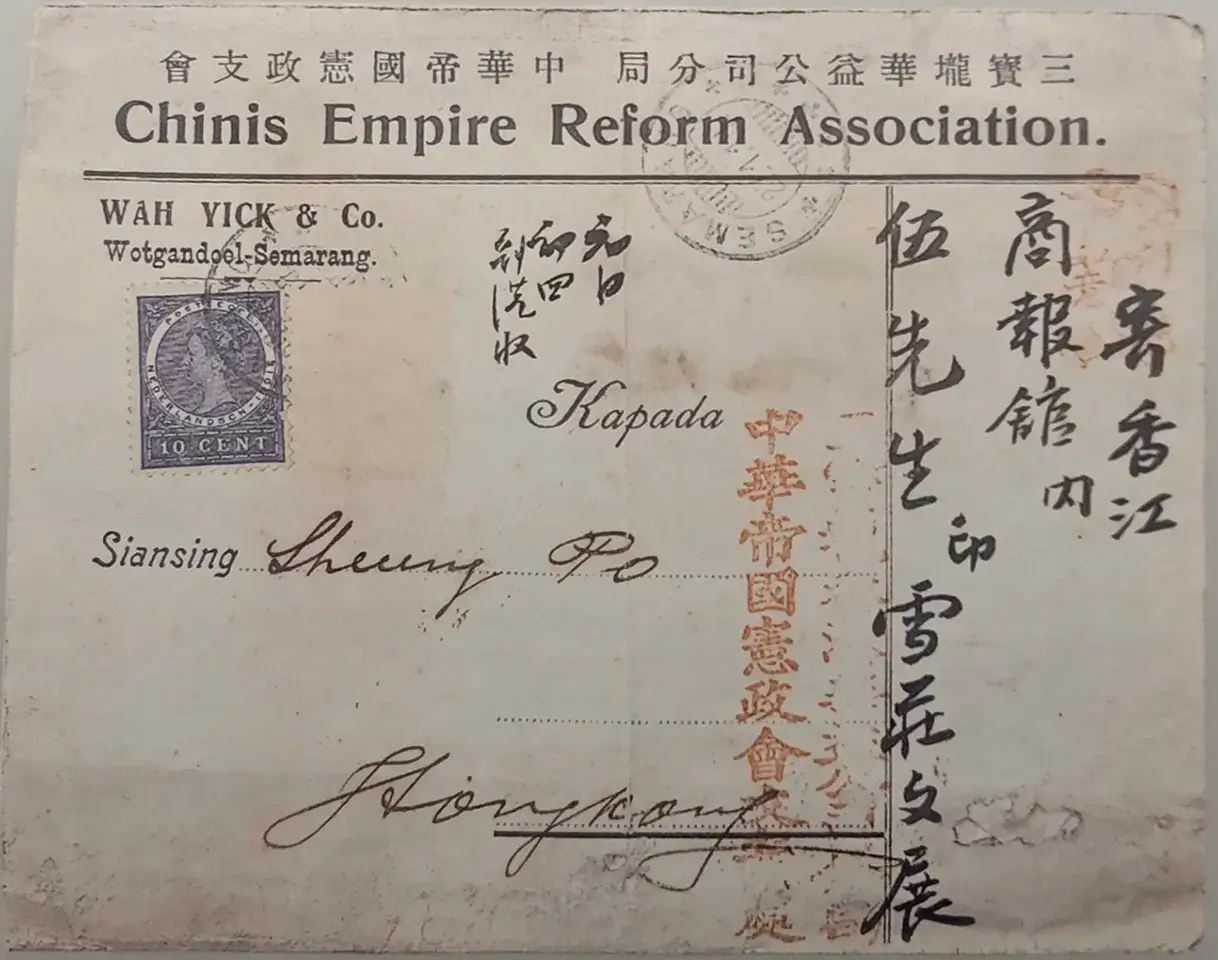 三寶壠華益公司分局 中華帝國憲政支會
Chinis Empire Reform Association.
WAH YICK & Co.
Wotgandoel-Semarang.
SEMARA
POSTZEGEL
NEDERLANDSCH-INDIË
10 CENT
寄香江
商報舘内
伍先生印雪莊文展
元日
初四
到港收
Kapada
Siansing Sheung Po
Hongkong
中華帝國憲政會